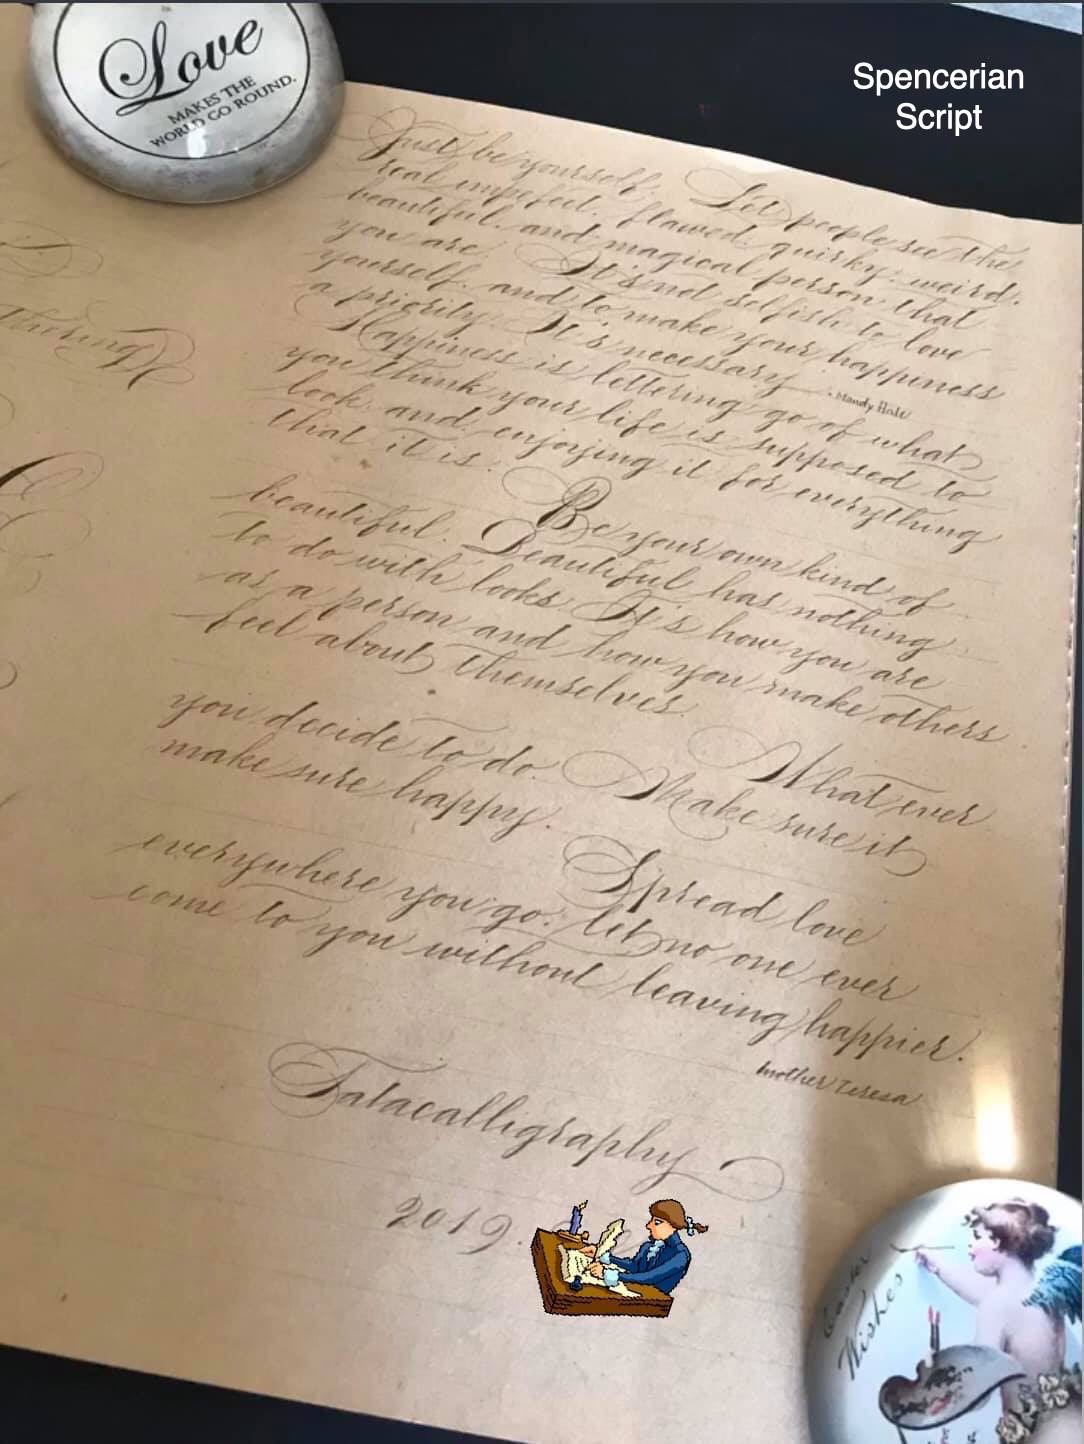 Love
MAKES THE
WORLD GO ROUND.
Spencerian
Script
Just be yourself. Let people see the
real, impefect, flawed, quirky, weird,
beautiful, and magical person that
you are. It's not selfish to love
yourself, and to make your happiness
a priority. It's necessary. Mandy Hale
Happiness is lettering go of what
you think your life is supposed to
look, and enjoying it for everything
that it is.
Be your own kind of
beautiful. Beautiful has nothing
to do with looks. It's how you are
as a person and how you make others
feel about themselves.
What ever
you decide to do. Make sure it
make sure happy.
Spread love
everywhere you go. let no one ever
come to you without leaving happier.
Mother Teresa
Tatacalligraphy
2019.
Easter
Wishes